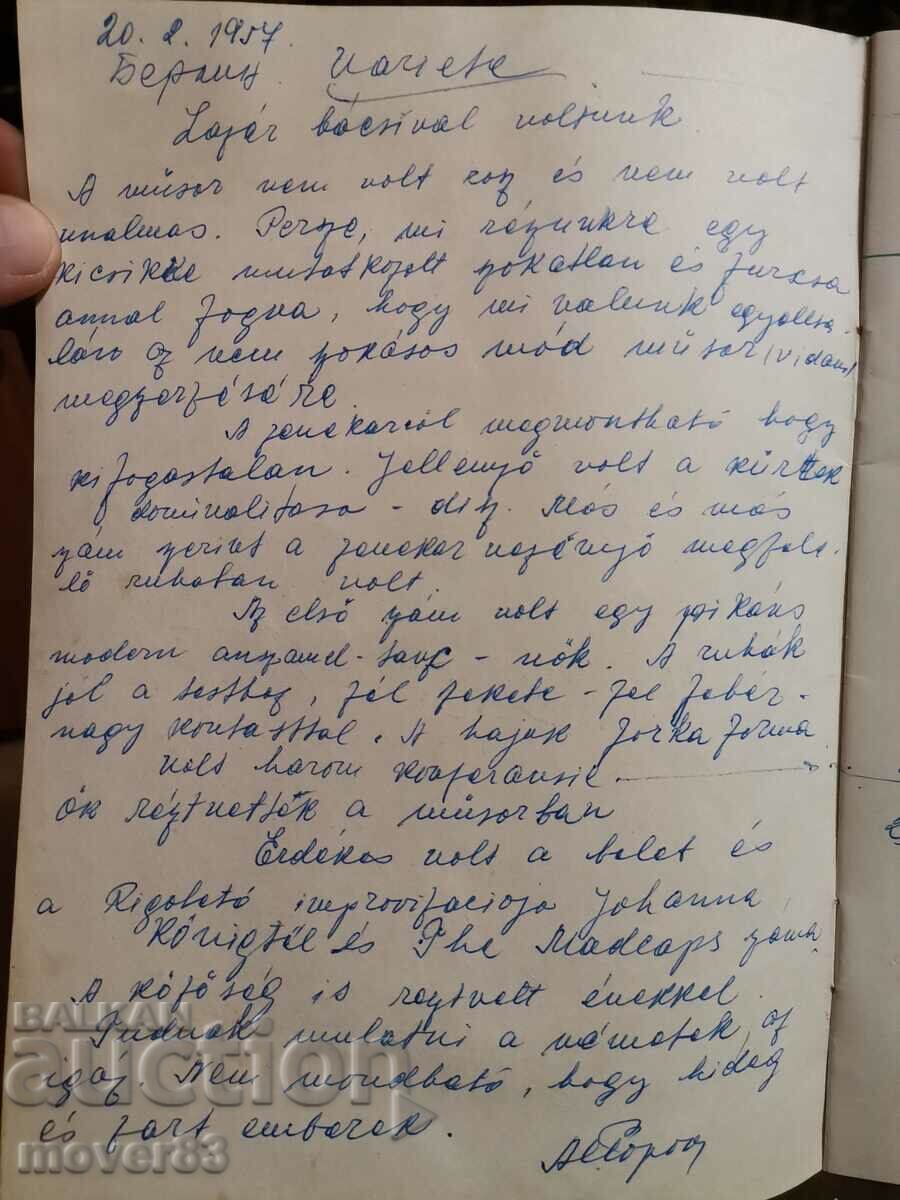 20. 2. 1957.
Берлин. Variete
Lazár bácsival voltunk
A műsor nem volt rosz és nem volt
unalmas. Persze, mi részünkre egy
kicsikke mutatkozott szokatlan és furcsa
annál fogva, hogy mi valunk
az nem szokásos mód műsor (vidám)
magyarzására.
A zenekarról megmontható hogy
kifogastalan. Jellemző volt a kürtök
dominalitasa - disz. Más és más
szám szerint a zenekar megfele-
lő ruhatan volt.
Az első szám volt egy pikáns
modern - tanc - nők. A ruhák
jól a testhoz, fél fekete - fél fehér -
nagy kontasttal. A hajuk forka forma
volt három konferansié
Ők résztvettek a műsorban
Érdekes volt a balet és
a Rigoletó improvizacioja Johanna
Königtől és The Madcaps száma.
A közöség is resztvett énekkel.
Tudnak mulatni a németek, az
igaz. Nem mondható, hogy hideg
és zart emberek.
BALKAN
auction
mover83